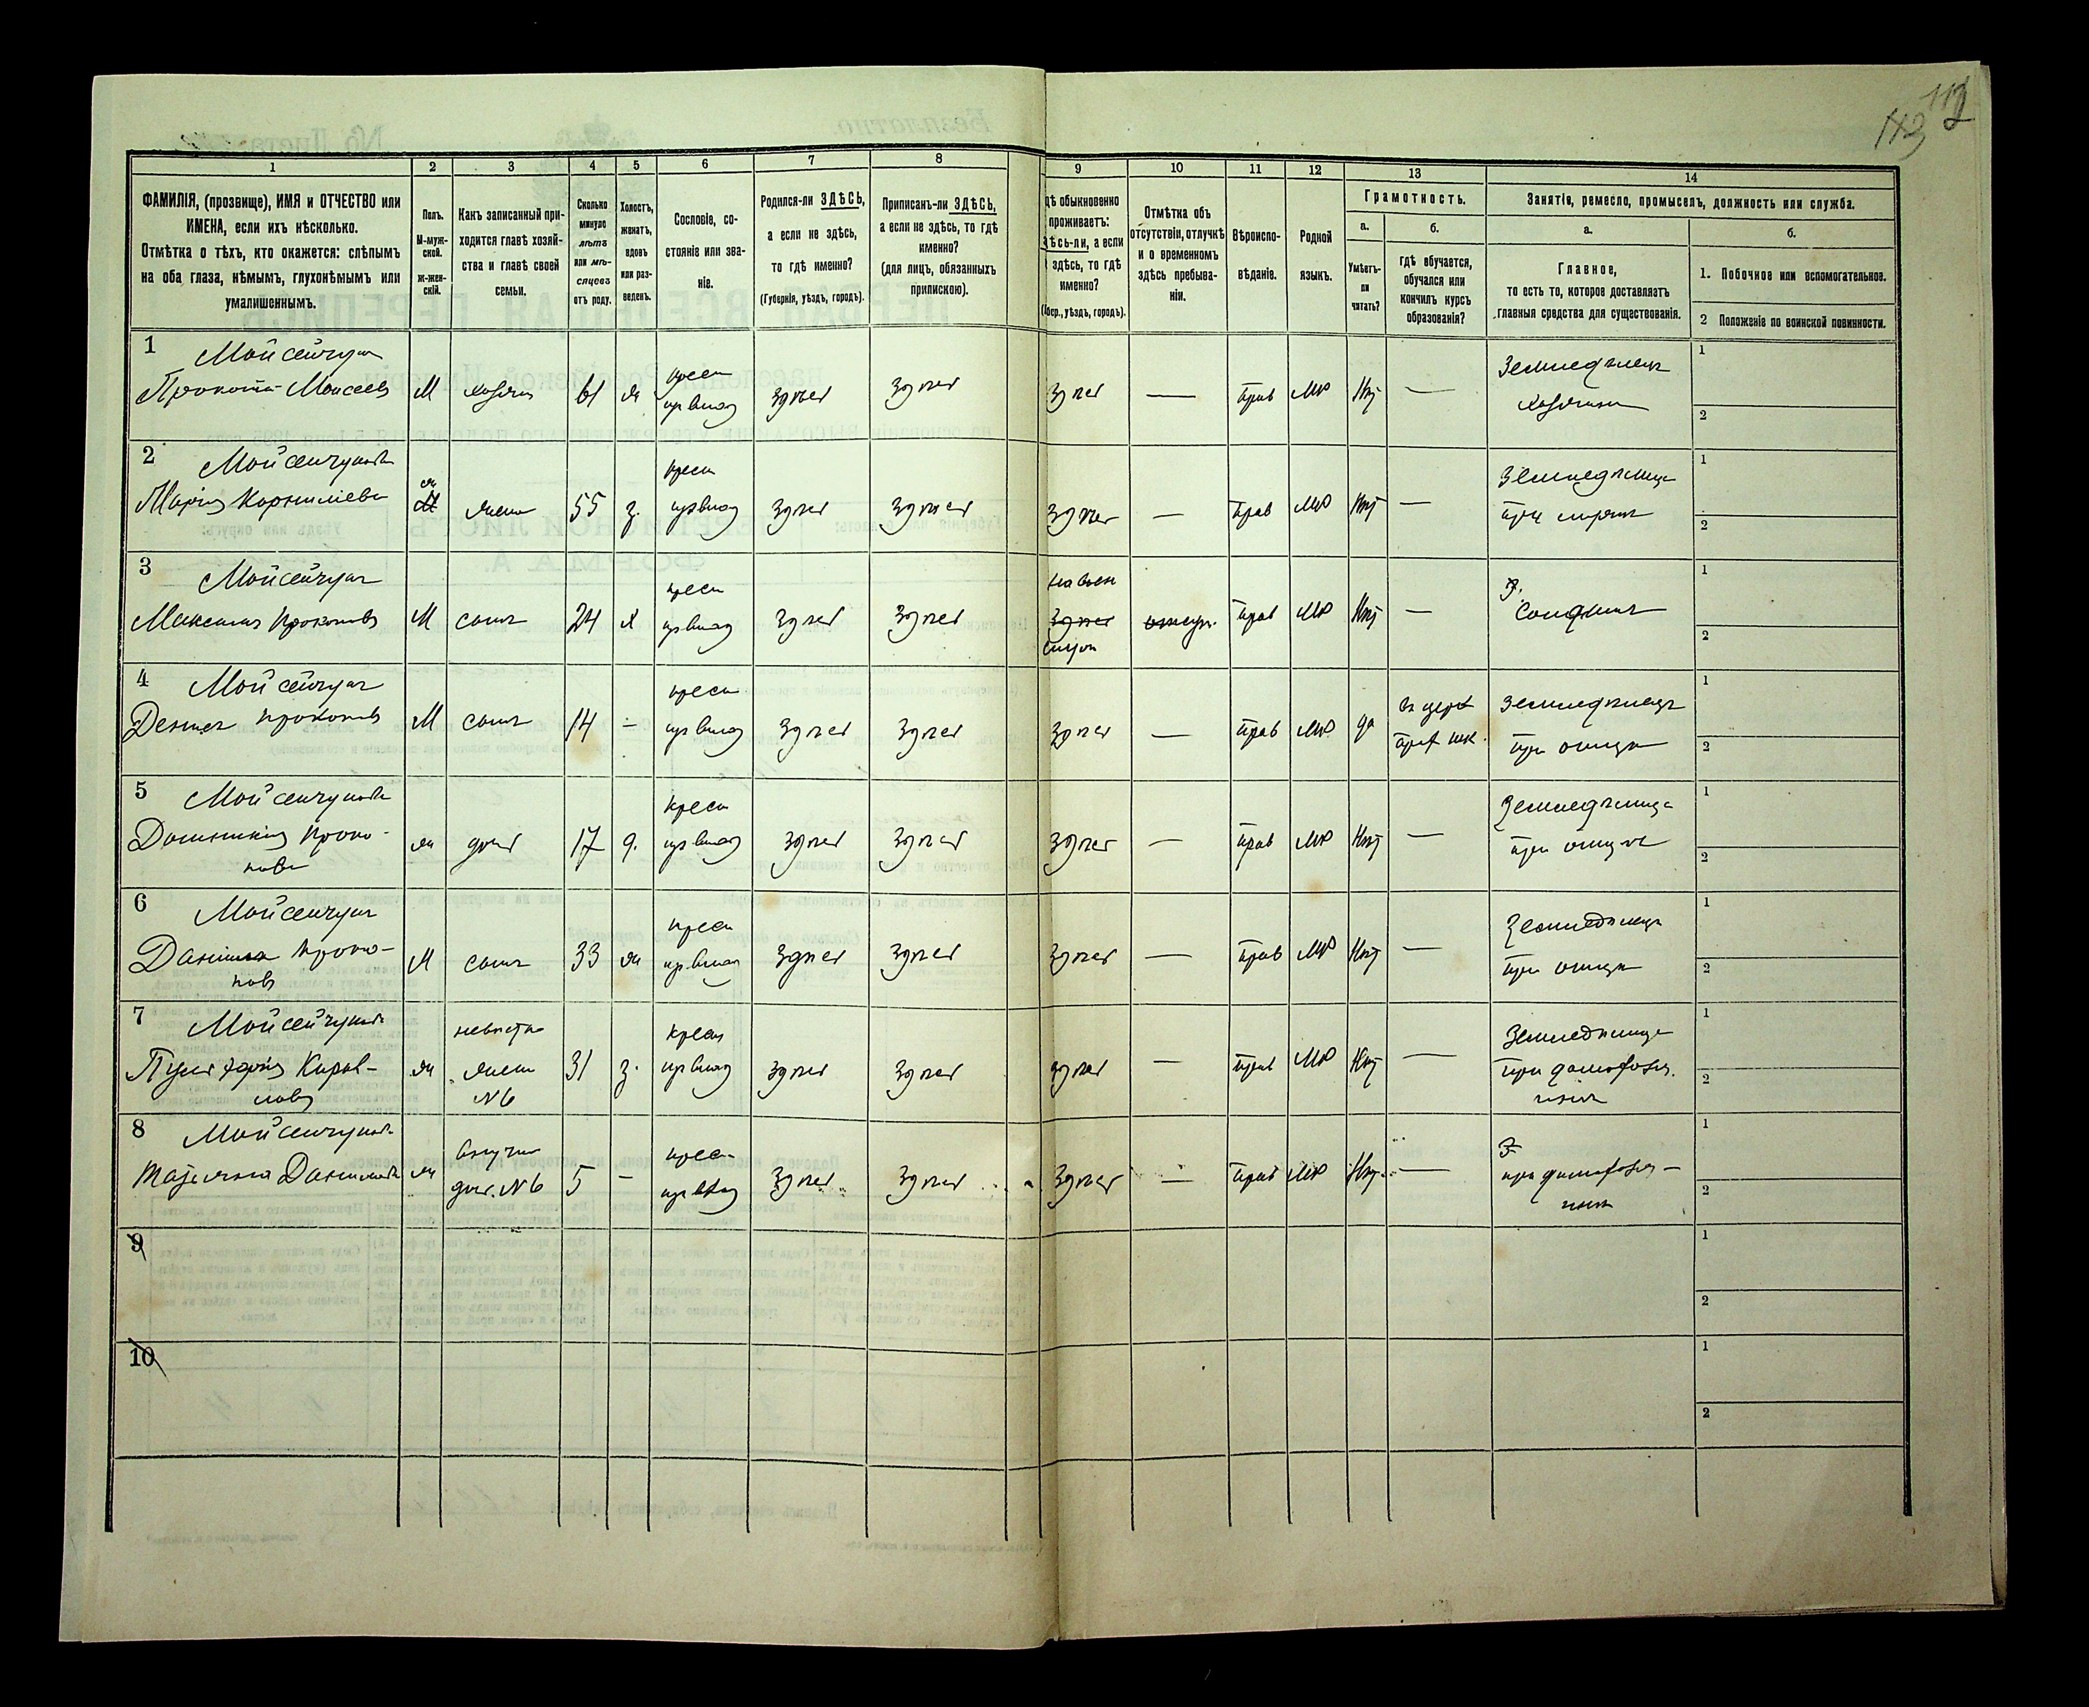 112
113
1
2
3
4
5
6
7
8
9
10
11
12
13
14
ФАМИЛІЯ, (прозвище), ИМЯ и ОТЧЕСТВО или
ИМЕНА, если ихъ нѣсколько.
Отмѣтка о тѣхъ, кто окажется: слѣпымъ
на оба глаза, нѣмымъ, глухонѣмымъ или
умалишеннымъ.
Полъ.
М-муж-
ской.
ж-жен-
скій.
Какъ записанный при-
ходится главѣ хозяй-
ства и главѣ своей
семьи.
Сколько
минуло
лѣтъ
или мѣ-
сяцевъ
отъ роду.
Холостъ,
женатъ,
вдовъ
или раз-
веденъ.
Сословіе, со-
стояніе или зва-
ніе.
Родился-ли ЗДѢСЬ,
а если не здѣсь,
то гдѣ именно?
(Губернія, уѣздъ, городъ).
Приписанъ-ли ЗДѢСЬ,
а если не здѣсь, то гдѣ
именно?
(для лицъ, обязанныхъ
припискою).
дѣ обыкновенно
проживаетъ:
здѣсь-ли, а если
здѣсь, то гдѣ
именно?
бер., уѣздъ, городъ).
Отмѣтка объ
отсутствіи, отлучкѣ
и о временномъ
здѣсь пребыва-
ніи.
Вѣроиспо-
вѣданіе.
Родной
языкъ.
Грамотность.
а.
Умѣетъ-
ли
читать?
б.
гдѣ обучается,
обучался или
кончилъ курсъ
образованія?
Занятіе, ремесло, промыселъ, должность или служба.
а.
Главное,
то есть то, которое доставляетъ
главныя средства для существованія.
б.
1. Побочное или вспомогательное.
2 Положеніе по воинской повинности.
1 Мойсейчукъ
Прокопій Моисеевъ М хозяинъ 61 ж крест из влад здѣсь здѣсь здѣсь — прав мр нѣт — Земледѣлецъ хозяинъ 1 2
2 Мойсейчукова
Марія Корниліева ж жена 55 з. крест из влад здѣсь здѣсь здѣсь — прав мр нѣт — Земледѣлица при мужѣ 1 2
3 Мойсейчукъ
Максимъ Прокоповъ М сынъ 24 х крест из влад здѣсь здѣсь на воен здѣсь служ прав мр нѣт — Солдатъ 1 2
4 Мойсейчукъ
Денисъ Прокоповъ М сынъ 14 — крест из влад здѣсь здѣсь здѣсь — прав мр да въ церк прих шк. Земледѣлецъ при отцѣ 1 2
5 Мойсейчукова
Доминикія Проко-
пова ж дочь 17 д. крест из влад здѣсь здѣсь здѣсь — прав мр нѣт — Земледѣлица при отцѣ 1 2
6 Мойсейчукъ
Данило Проко-
повъ М сынъ 33 ж крест из влад здѣсь здѣсь здѣсь — прав мр нѣт — Земледѣлецъ при отцѣ 1 2
7 Мойсейчукова
Пульхерія Кирил-
лова ж невѣстка жена №6 31 з. крест из влад здѣсь здѣсь здѣсь — прав мр нѣт — Земледѣлица при домохозя-
инѣ 1 2
8 Мойсейчукова
Татьяна Данилова ж внучка доч. №6 5 — крест из влад здѣсь здѣсь здѣсь — прав мр нѣт — при домохозя-
инѣ 1 2
9 1 2
10 1 2